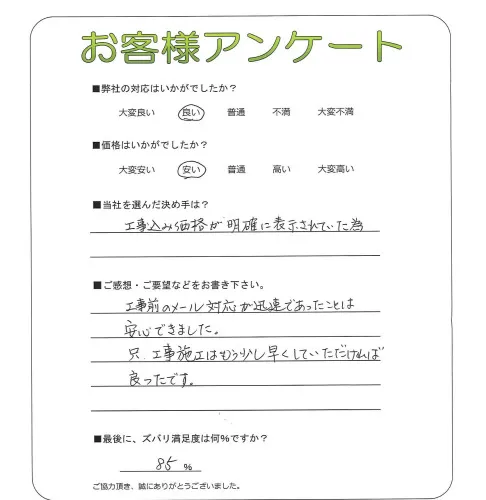 お客様アンケート
■弊社の対応はいかがでしたか？
大変良い 良い 普通 不満 大変不満
■価格はいかがでしたか？
大変安い 安い 普通 高い 大変高い
■当社を選んだ決め手は？
工事込み価格が明確に表示されていた為
■ご感想・ご要望などをお書き下さい。
工事前のメール対応が迅速であったことは
安心できました。
只、工事施工はもう少し早くしていただければ
良ったです。
■最後に、ズバリ満足度は何％ですか？
85 ％
ご協力頂き、誠にありがとうございました。